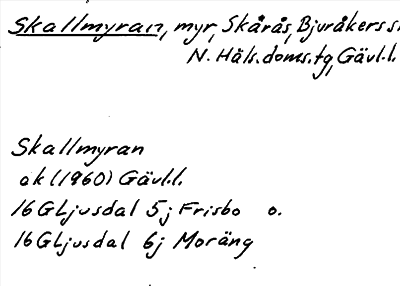 Skallmyran, myr, Skårås, Bjuråkers s
N. Häls. doms. tg, Gävl.l.
Skallmyran
ek (1960) Gävl.l.
16G Ljusdal 5j Frisbo o.
16G Ljusdal 6j Moräng